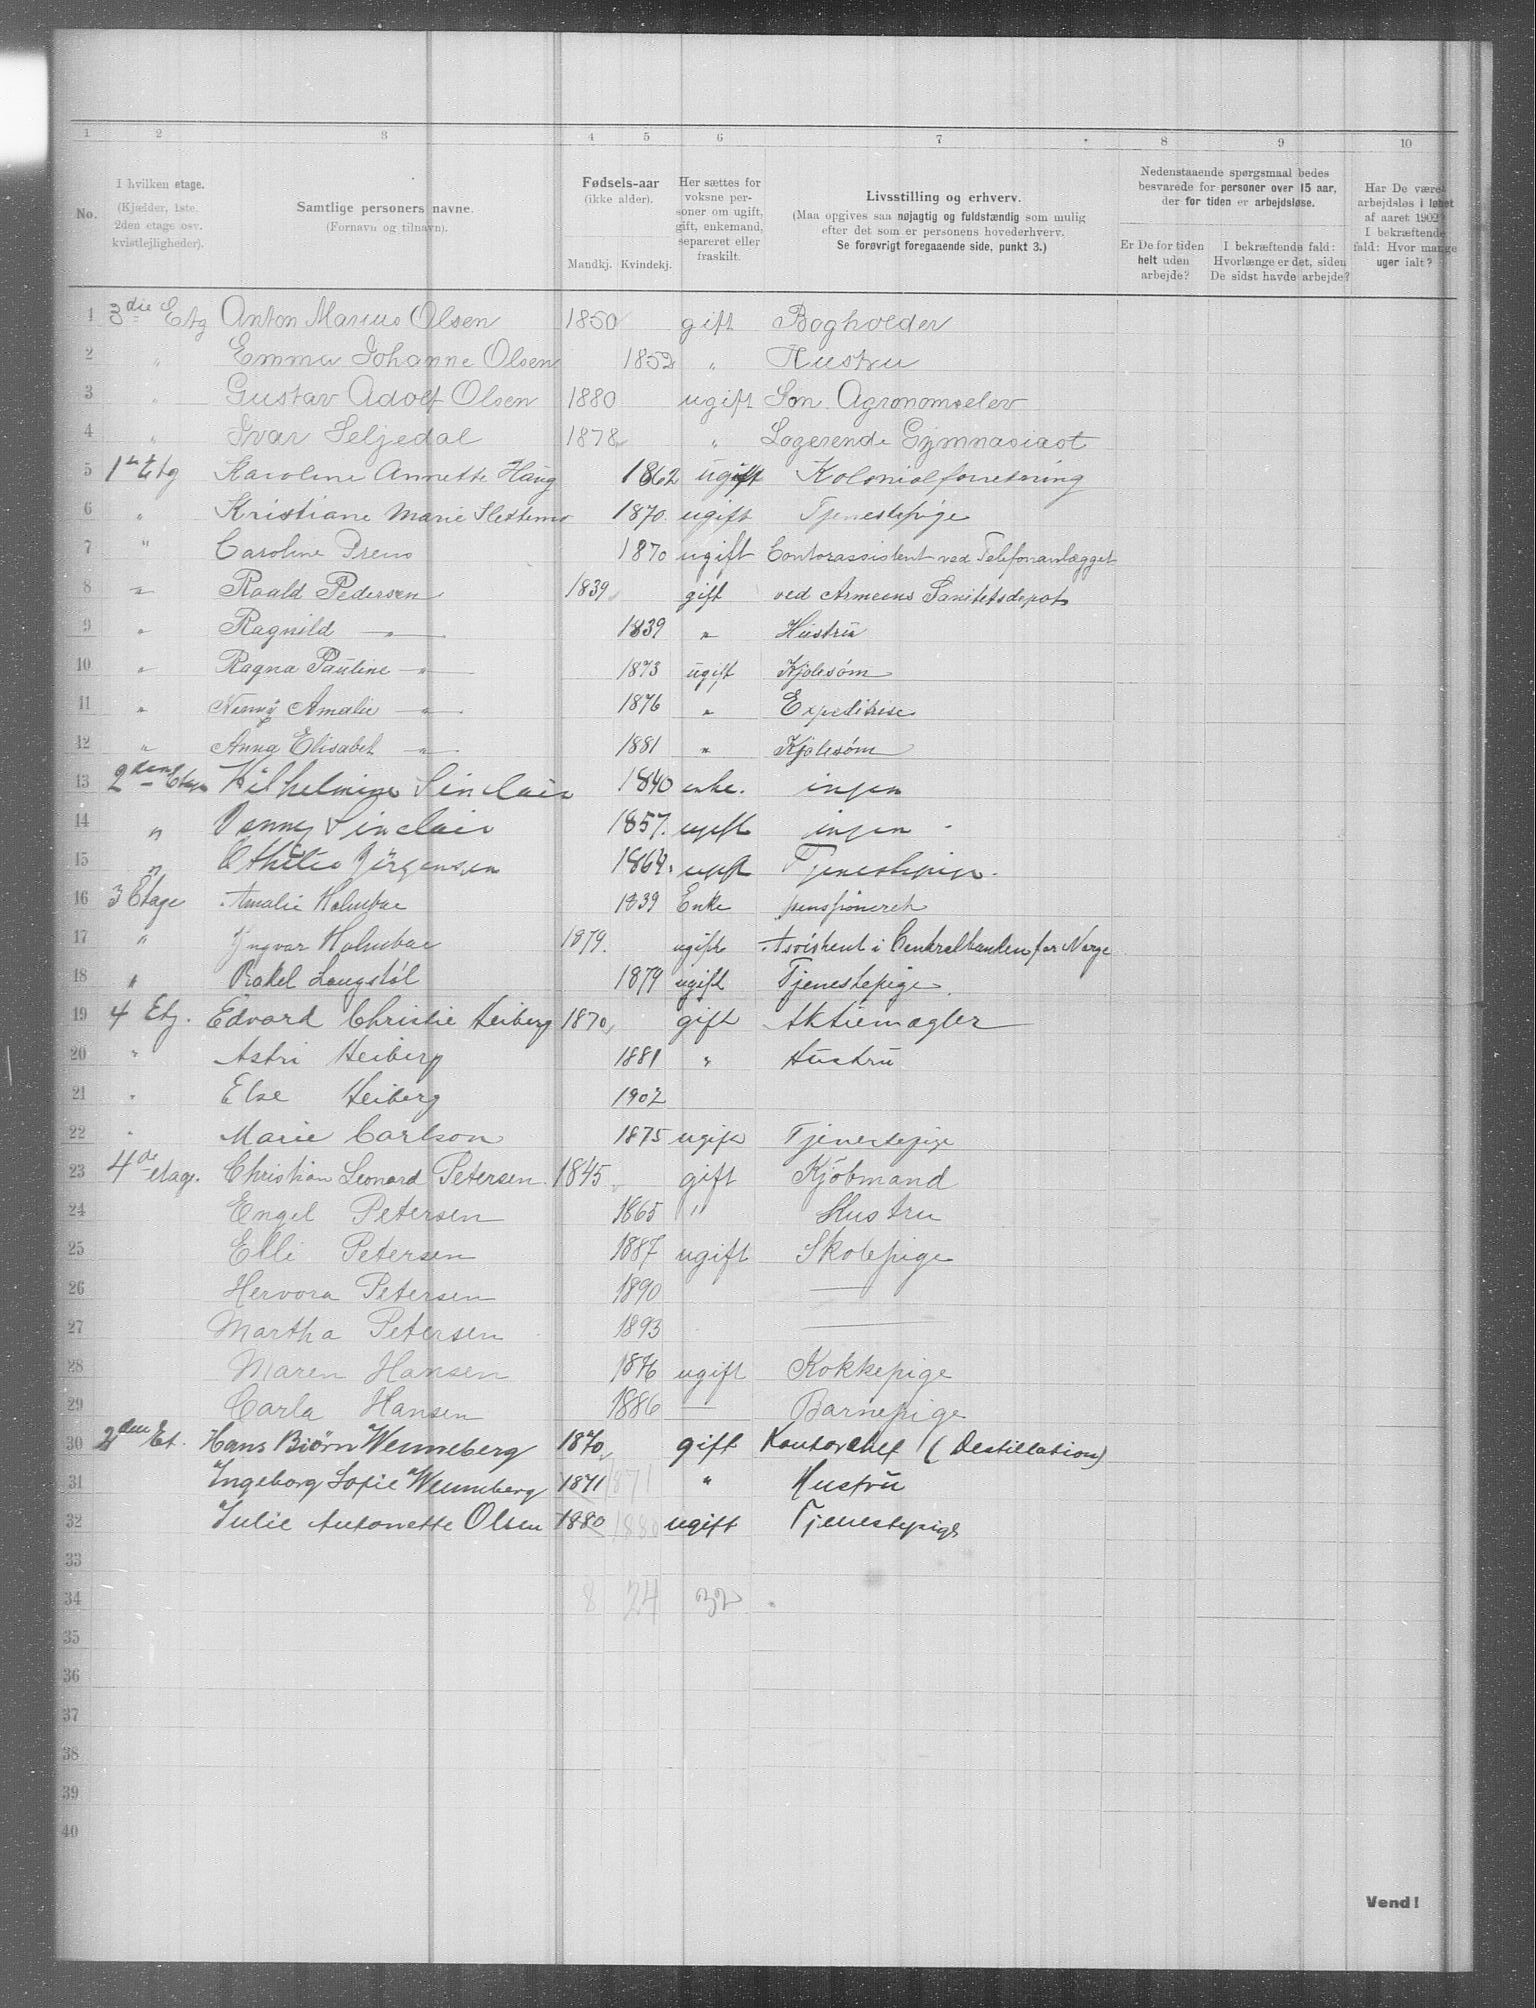 1 2 3 4 5 6 7 8 9 10
No.
I hvilken etage.
(Kjælder, 1ste.
2den etage osv.
kvistlejligheder).
Samtlige personers navne.
(Fornavn og tilnavn).
Fødsels-aar
(ikke alder).
Mandkj. Kvindekj.
Her sættes for
voksne per-
soner om ugift,
gift, enkemand,
separeret eller
fraskilt.
Livsstilling og erhverv.
(Maa opgives saa nøjagtig og fuldstændig som mulig
efter det som er personens hovederhverv.
Se forøvrigt foregaaende side, punkt 3.)
Nedenstaaende spørgsmaal bedes
besvarede for personer over 15 aar,
der for tiden er arbejdsløse.
Er De for tiden
helt uden
arbejde?
I bekræftende fald:
Hvorlænge er det, siden
De sidst havde arbejde?
Har De været
arbejdsløs i løbet
af aaret 1902?
I bekræftende
fald: Hvor mange
uger ialt?
1 3die Etg Anton Marius Olsen 1850 gift Bogholder
2 " Emma Johanne Olsen 1852 " Hustru
3 " Gustav Adolf Olsen 1880 ugift Søn. Agronomelev
4 " Ivar Seljedal 1878 " Logerende Gymnasiast
5 1ste Etg Karoline Annette Haug 1862 ugift Kolonialforretning
6 " Kristiane Marie 1870. ugift Tjenestepige
7 " Caroline 1870 ugift Contorassistent ved Telefonanlægget
8 " Roald Pedersen 1839 gift ved Armeens Sanitetsdepot
9 " Ragnild " 1839 " Hustru
10 " Ragna Pauline " 1873 ugift Kjolesøm
11 " Nanny Amalie " 1876 " Expeditrise
12 " Anna Elisabet " 1881 " Kjolesøm
13 2den Etage Wilhelmine Sinclair 1840 enke. ingen
14 " Sinclair 1857. ugift ingen
15 " Jørgensen 1864. ugift Tjenestepige.
16 3 Etage Amalie Holmboe 1839 Enke pensjoneret
17 " Yngvar Holmboe 1879. ugift Assistent i Centralbanken for Norge
18 " Rakel Langstøl 1879 ugift Tjenestepige
19 4 Etg. Edvard Christie Heiberg 1870 gift Aktiemægler
20 " Astri Heiberg 1881 " Hustru
21 " Else Heiberg 1902
22 " Marie Carlson 1875 ugift Tjenestepige
23 4de etage. Christian Leonard Petersen. 1845 gift Kjöbmand
24 Engel Petersen 1865 " Hustru
25 Elli Petersen 1887 ugift Skolepige
26 Hervora Petersen 1890 —
27 Martha Petersen 1893 —
28 Maren Hansen 1876 ugift Kokkepige
29 Carla Hansen 1886 — Barnepige
30 2den Et. Hans Biørn Wenneberg 1870 gift Kontorchef (Destillation)
31 Ingeborg Sofie Wenneberg 1871 1871 " Hustru
32 Julie Antonette Olsen 1880 1880 ugift Tjenestepige
33
34 8 24 32
35
36
37
38
39
40
Vend!